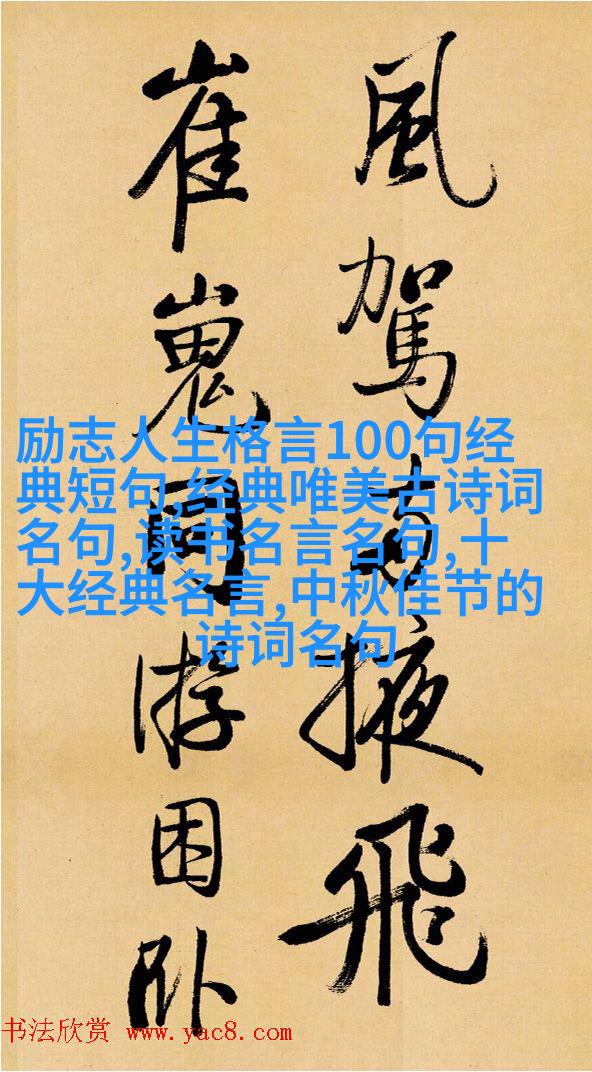 風駕掖飛
崔嵬同游困卧
励志人生格言100句经
典短句,经典唯美古诗词
名句,读书名言名句,十
大经典名言,中秋佳节的
诗词名句
书法欣赏 www.yac8.com